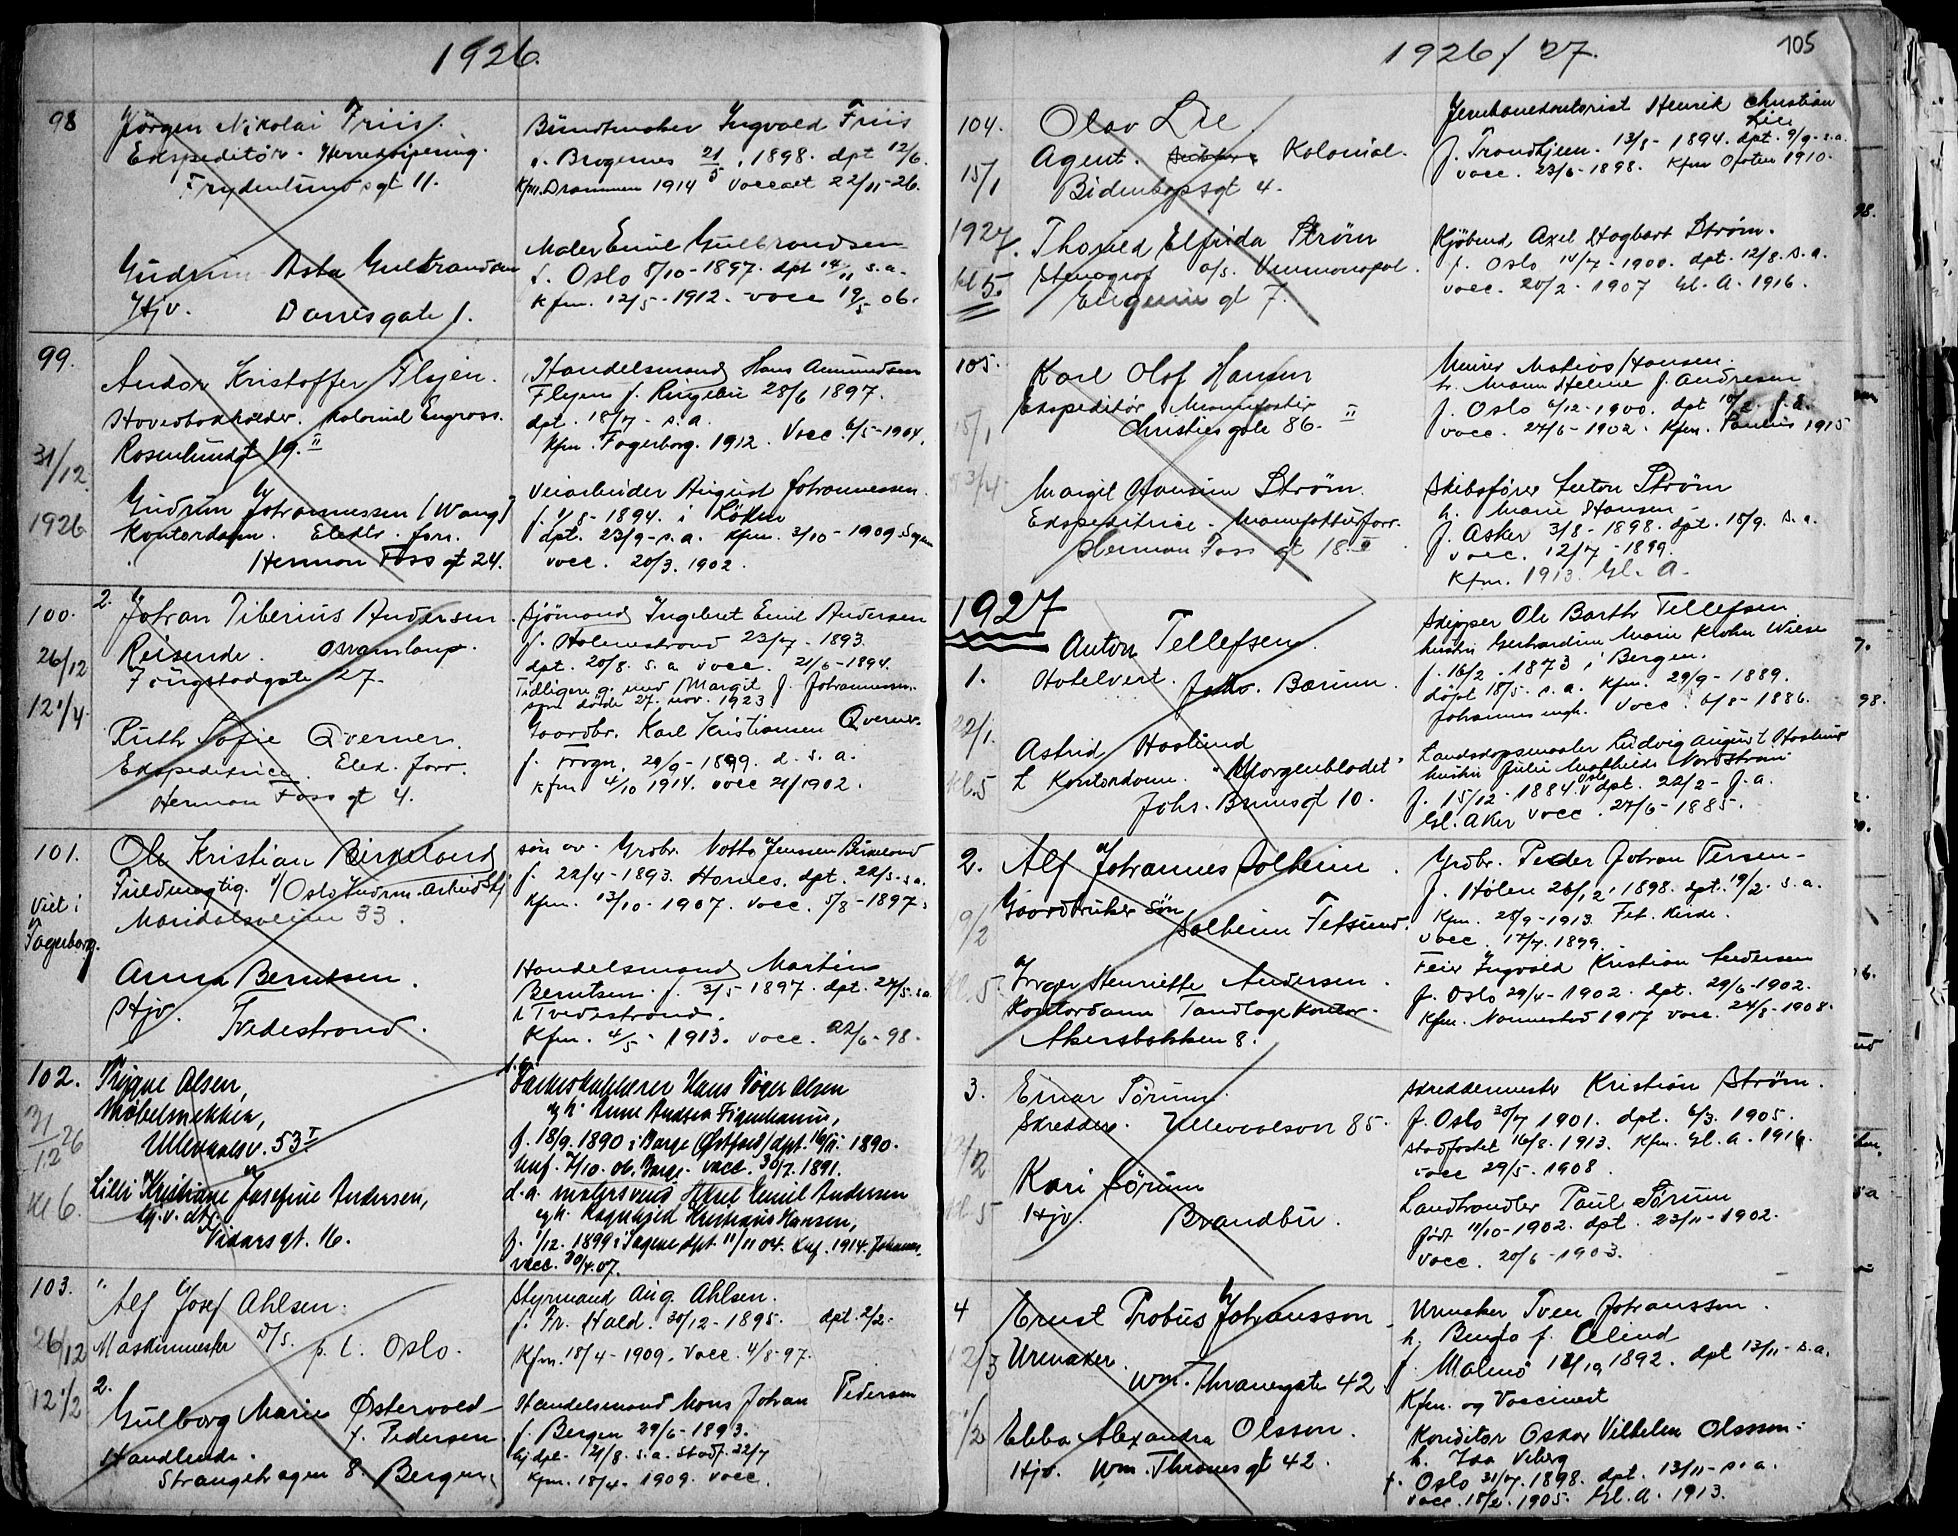 1926.
98
Jörgen Nikolai Friis.
Ekspeditör - Herreekvipering.
Frydenlundsgt 11.
Buntmaker Ingvald Friis
f. Bragernes 21/5 1898. dpt 12/6.
Kfm. Drammen 1914 Vaccaet 22/11-26.
Gudrun Asta Gulbrandsen
Hjv. Darresgate 1.
Maler Emil Gulbrandsen
f. Oslo 5/10-1897. dpt 14/11 s.a.
Kfm. 12/5-1912. vacc 19/5 06.
99.
31/12
1926
Andor Kristoffer Flyen.
Hovedbokholder. Kolonial Engross.
Rosenlundgt 19. II
Handelsmand Hans Amundsen
Flyen f. Ringebu 28/6 1897.
dpt. 18/7 - s.a.
Kfm. Fagerborg. 1912. Vacc. 6/5-1904.
Gudrun Johannessen (Wang)
Kontordame. Elektr. forr.
Herman Foss gt 24.
Veiarbeider August Johannessen.
f. 4/8-1894. i Löken
dpt. 23/9-s.a. Kfm. 3/10-1909
vacc. 20/3. 1902.
100.
26/12
12 1/4.
2. Johan Tiberius Andersen
Reisende. Osramlamp.
Tougstadgate 27.
Sjömand Ingebret Emil Andersen
f. Holmestrand 23/7-1893.
dpt. 20/8. s.a vacc. 21/6-1894.
Tidligere g. med Margit f. Johannessen.
som döde 27. nov. 1923
Ruth Sofie Qverner.
Ekspeditrice. Elek. forr.
Herman Foss gt 4.
Gaardbr. Karl Kristiansen Qverner.
f. Frogn. 29/9-1899. d. s. a.
Kfm 4/10 1914. vacc 21/1902.
101.
Viet i
Fagerborg.
Ole Kristian Birkeland
Fuldmægtig. v/ Oslo Indrem. Arbeidskj
Maridalsveien 33.
søn av. Grdbr. Notto Jensen Birkeland
f. 22/4-1893. Hornes. dpt. 22/5-s.a.
Kfm. 13/10-1907. vacc. 5/8-1897.
Anna Berntsen.
Hjv. Tvedestrand.
Handelsmand Martin
Berntsen. f. 3/5 1897. dpt. 27/5. s.a.
i Tvedestrand.
Kfm. 4/5-1913. vacc. 22/6-98.
102.
31/12 26
Kl 6.
Trygve Olsen,
Møbelsnekker,
Ullevaalsv. 53 I
Hans Olsen
f. 18/9. 1890 i Borge (Østfold) dpt. 16/11. 1890.
Knf. 7/10. 06. Borge. vacc. 30/7. 1891.
Lilli Kristiane Josefine Andersen,
Vidarsgt. 16.
d.a. malersvend Aksel Emil Andersen
og h. Ragnhild Kristiane Hansen,
f. 1/12. 1899 i Sagene dpt. 11/11 04. Knf. 1914. Johannes.
vacc. 30/4. 07.
103.
26/12
12 1/2
Alf Josef Ahlsen.
Maskinmester D/S. p. t. Oslo.
Styrmand Aug. Ahlsen.
f. Fr. Hald. 30/12-1895. dpt. 2/2.
Kfm. 18/4-1909. Vacc. 4/8-97.
2.
Gulborg Marie Østervold
f. Pedersen
Handlende.
Strangehagen 8. Bergen.
Handelsmand Mons Johan Pedersen
f. Bergen 29/6-1893.
hjdpt. 21/8. s.a. Stadf. 22/7
Kfm. 18/4-1909. vacc.
1926/27.
105
104.
15/1
1927.
kl 5.
Olav Lie
Agent. Kolonial.
Bidenkapsgt 4.
Jernbanekontorist Henrik Christian
Lie
f. Trondhjem. 13/8-1894. dpt. 9/9-s.a.
vacc. 23/6-1898. Kfm Ofoten 1910.
Thorild Elfrida Strøm
Stenograf a/s. Vinmonopol.
Eugenies gt 7.
Kjöbmd. Axel Hagbart Strøm.
f. Oslo 14/7-1900. dpt. 12/8. s.a.
vacc. 20/2-1907 Gl. A. 1916.
105.
15/1
Karl Olof Hansen
Ekspeditør Manufaktur
Christies gate 86. II
Murer Matios Hansen.
f. Andresen
f. Oslo 6/12-1900. dpt
vacc. 24/6-1902. Kfm. Paulus 1915
Margit Hansine Strøm.
Ekspeditrice - Manufakturforr.
Herman Foss gt 18. II
Skibsfører Anton Strøm
h. Marie Hansen
f. Asker 3/8-1898. dpt. 15/9. s.a.
vacc. 12/7-1899.
Kfm. 1913. Gl. A.
1927
1.
22/1.
kl. 5
Anton Tellefsen.
Hotelvert. Bærum.
Skipper Ole Barth Tellefsen
hustru Gerhardine Marie Krohn Wiese
f. 16/2. 1873 i Bergen.
döpt 18/5. s.a. Kfm. 29/9-1889.
Johannes mgh. Vacc. 6/8-1886.
Astrid Haslund
Kontordame. "Morgenbladet"
Johs. Brunsgt 10.
Landskapsmaler Ludvig August Haslund
hustru Julie Mathilde Nordstrøm
f. 15/12-1884. Oslo dpt. 22/2-f.a.
Gl. Aker vacc. 27/6-1885.
2.
9/2
kl. 5.
Alf Johannes Solheim
Gaardbruker søn
Solheim Fetsund.
Grdbr. Peder Johan Persen
f. Hølen 26/12. 1898. dpt. 19/2. s.a.
Kfm. 28/9-1913. Fet. Kirke.
vacc. 17/7. 1899.
Henriette Andersen.
Kontordame Tandlægekontor.
Akersbakken 8.
Feier Ingvald Kristian Andersen
f. Oslo 29/4-1902. dpt. 29/6-1902.
Kfm. Nannestad 1917 vacc. 24/8-1908.
3.
kl. 5
Einar Strøm.
Skredder. Ullevaalsvn 85.
Skreddermester Kristian Strøm.
f. Oslo 30/7 1901. dpt. 6/3. 1905.
stadfæstet 16/8. 1913. Kfm. Gl. A. 1916.
vacc 29/5-1908.
Kari Sørum
Hjv. Brandbu.
Landhandler Paul Sørum
født 11/10-1902. dpt. 23/11-1902.
Vacc. 20/6-1903.
4
12/3
1/2
Ernst Probus Johansson
Urmaker.
Wm. Thranesgate 42
Urmaker Sven Johansson.
h. Bengta f. Celind
f. Malmö 1892. dpt 13/11-s.a.
Kfm. og Vaccinert
Ebba Alexandra Olsson.
Hjv. Wm. Thranes gt 42.
Konditor Oskar Vilhelm Olsson.
h. Ida Viberg
f. Oslo 31/7. 1898. dpt. 13/11-s.a.
vacc. 18/2. 1905. Gl. A. 1913.